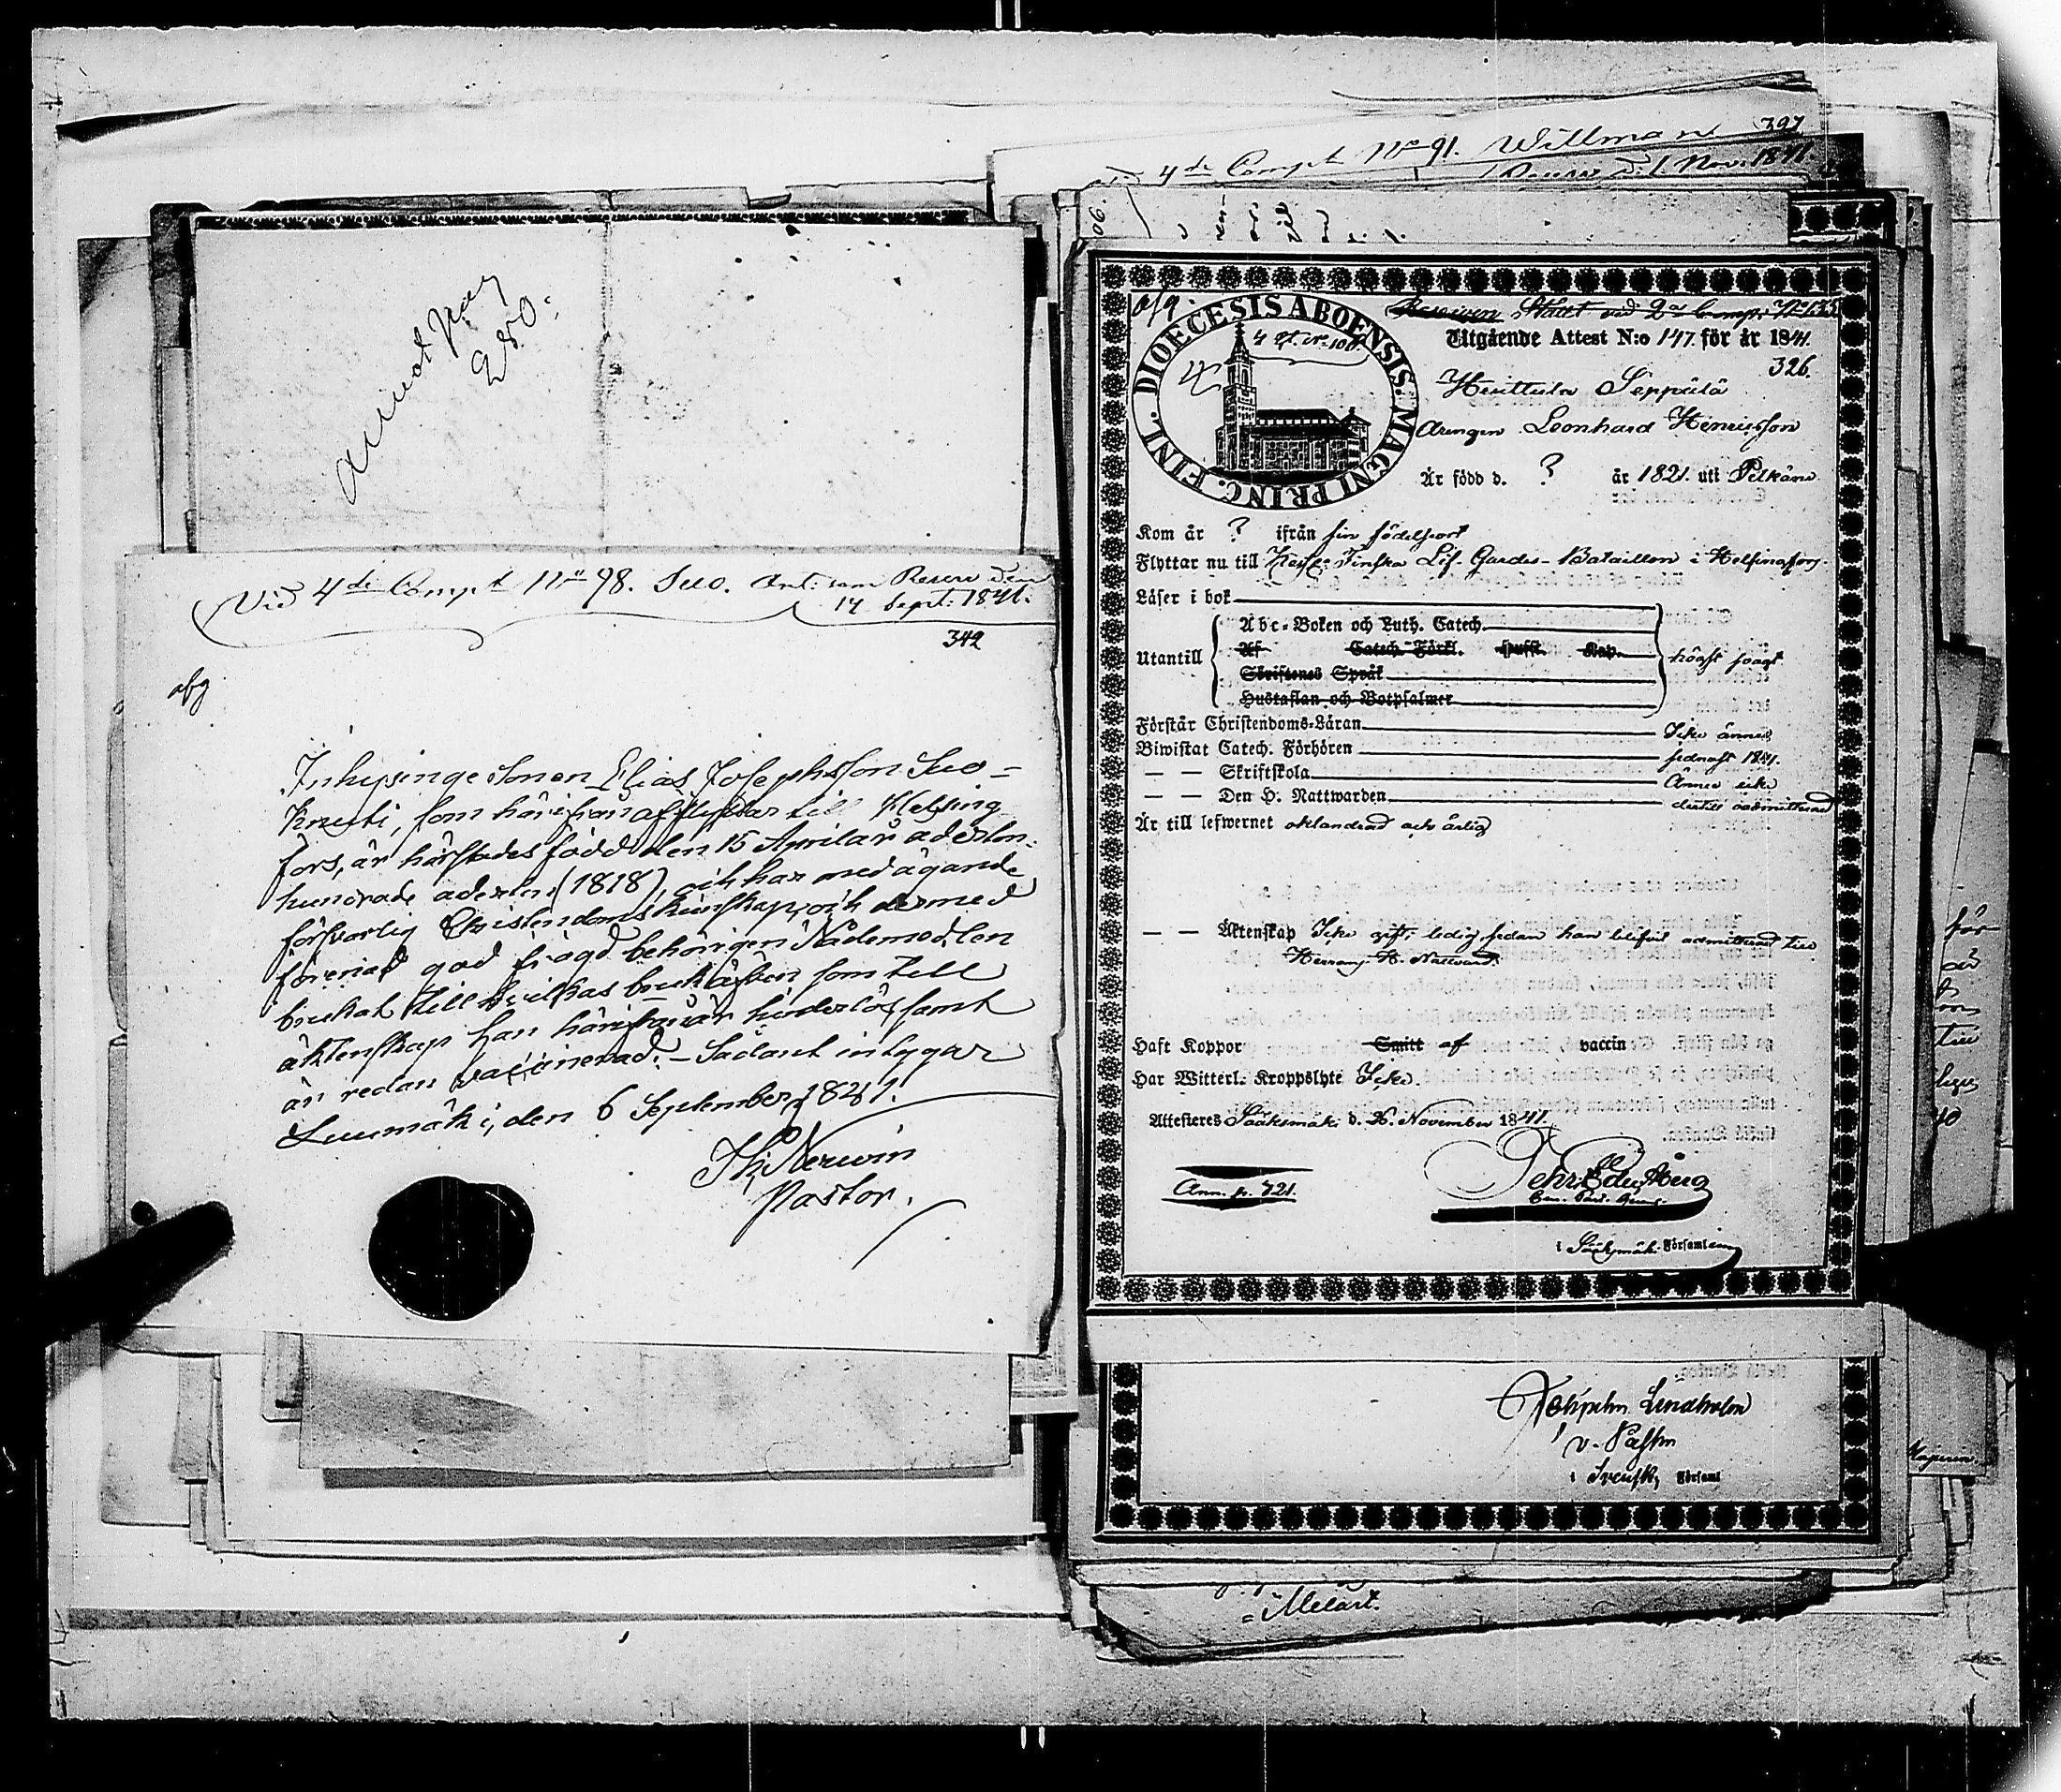 Annot pag
280.
Vid 4de Comp:t No 98. Suo. Ant: som Reserv den
14 Sept: 1841.
342
afg
Inhysinge Sonen Elias Josephsson Suo-
Knuti, som härifrån afflyttar till Helsing-
fors, är härstädes född den 15 April år aderton-
hundrade aderton (1818), och har med ägande
försvarlig Christendomskunskap, och dermed
förenad god frägd behörigen Nådemedlen
brukat till hvilkas bruk äfven som till
äktenskap han härifrån är hinderlös samt
är redan vaccinerad. - Sådant intygar
Luumäki, den 6 September 1841.
Th. Nerwin
Pastor.
4de Comp:t No 91. Willman 397
Reserv d. 1. Nov. 1841.
afg.
DIOECESIS ABOENSIS. MAGNI PRINC. FINL.
Reserven Stält vid 2a Comp: No 135
Utgående Attest N:o 147 för år 1841.
326.
Huittula Seppälä
Drängen Leonhard Henricsson
Är född d. ? år 1821. uti Pelkäne
Kom år ? ifrån sin födelseort
Flyttar nu till Kejs: Finska Lif-Gardes-Bataillon i Helsingfors.
Läser i bok
Abc-Boken och Luth. Catech.
Utantill Af Catech. Förkl. Hufst. Kap. högst svagt
Skriftenes Språk
Hustaflan och Botpsalmer
Förstår Christendoms-Läran Icke ännu
Biwistat Catech. Förhören sednast 1841.
— — Skriftskola Ännu icke
— — Den H. Nattwarden dertill admitterad
Är till lefwernet oklandrad och ärlig
— — Äktenskap Icke gift, ledig sedan han blifvit admitterad till
Herrans H. Nattvard.
Haft Koppor Smitt af vaccin
Har Witterl. Kroppslyte Icke.
Attesteres Sääksmäki d. November 1841.
Ann. p. 721.
i Sääksmäki Församl
Lindholm
v. Pastor
i Församl
= Melart.